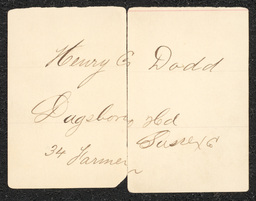 Henry C Dodd
Dagsboro Hd
Sussex C
34 Farmer